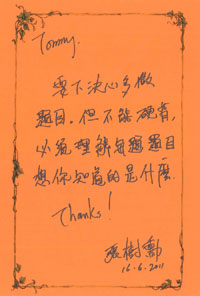 Tommy.
要下決心多做
題目,但不能硬背,
必須理解每題題目
想你知道的是什麼.
Thanks!
張樹
16.6.2011